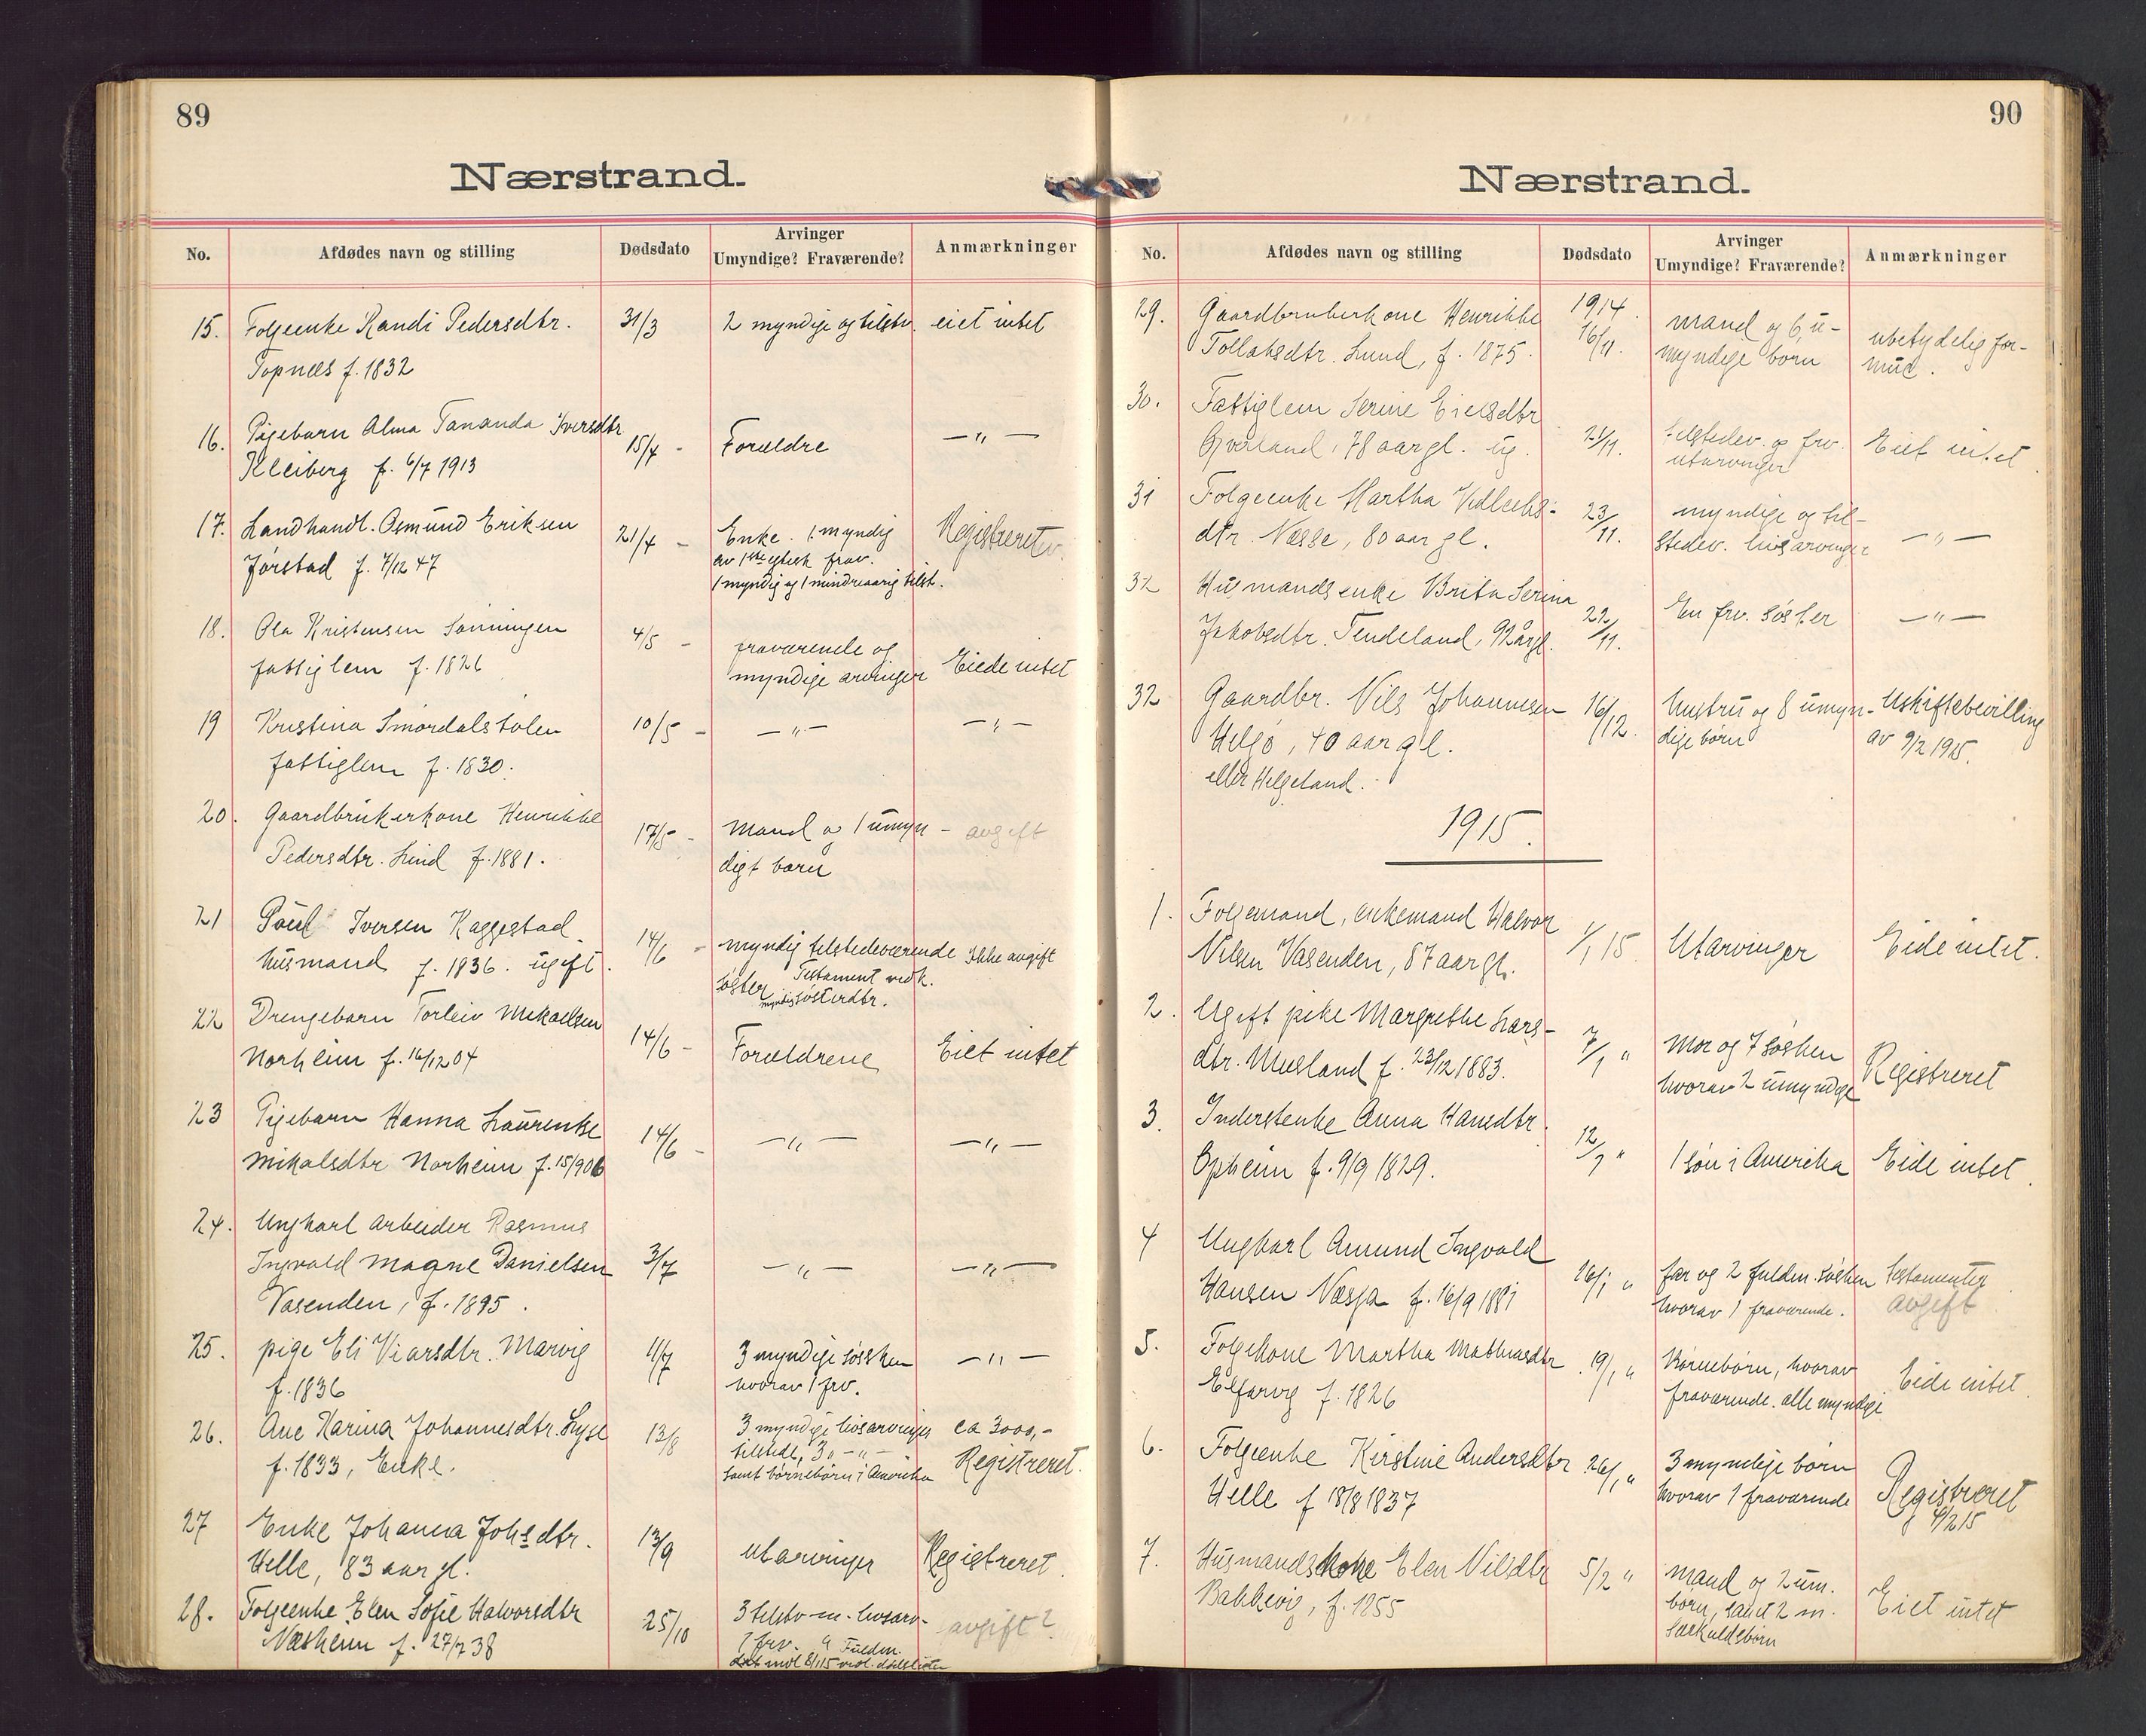 89
Nærstrand.
No. Afdødes navn og stilling Dødsdato Arvinger Umyndige? Fraværende? Anmærkninger
15. Folgeenke Randi Pedersdtr. 31/3 2 myndige og tilstv. eiet intet
Topnæs f. 1832
16. Pigebarn Alma Tananda Iversdtr 15/4 - Forældre —"—
Kleiberg f. 6/7 1913
17. Landhandl. Osmund Eriksen 21/4 - Enke. 1 myndig Registreret
Jørstad f. 7/12 47 av 1ste egtesk. frav.
1 myndig og 1 mindreaarig tilst.
18. Ola Kristensen 4/5 - fraværende og
fattiglem f. 1826 myndige arvinger Eiede intet
19 Kristina Smordalstolen 10/5 - —"— —"—
fattiglem f. 1830.
20. Gaardbrukerkone Henrikke 17/5 - Mand og 1 umyn- avgift
Pedersdtr. Lund f. 1881. digt barn
21 Poul Iversen Kaggestad 14/6 - myndig tilstedeværende Ikke avgift
husmand f. 1836. ugift. søster Testament vedk.
myndig søsterdtr.
22 Drengebarn Torleiv Mikaelsen 14/6 - Forældrene Eiet intet
Norheim f. 16/12 04
23 Pigebarn Hanna Laurentse 14/6 - —"— —"—
Mikalsdtr Norheim f. 15/9 06
24. Ungkarl arbeider Rasmus
Ingvald Magne Danielsen 3/7 —"— —"—
Vasenden, f. 1895.
25. pige Eli Viarsdtr. Marvig 11/7 3 myndige søsken —"—
f. 1836 hvorav 1 frv.
26. Ane Karina Johannesdtr. Lyse 13/8 3 myndige livsarvinger ca 3000,-
f. 1833, Enke. tilstede, 3 „ - „ - Registreret.
samt børnebørn i Amerika
27 Enke Johanna Johsdtr. 13/9 utarvinger Registreret.
Helle, 83 aar gl.
28. Folgeenke Elen Sofie Halvorsdtr 25/10 3 tilstv m. livsarv. avgift?
Næsheim f. 27/7 38 1 frv. Fuldm.
90
Nærstrand.
No. Afdødes navn og stilling Dødsdato Arvinger Umyndige? Fraværende? Anmærkninger
29. Gaardbrukerkone Henrikke 1914. mand og 6 u- ubetydelig for-
Tollaksdtr. Lund, f. 1875. 16/11. myndige børn mue.
30. Fattiglem Serine Eielsdtr
Øverland, 78 aar gl. ug. 21/11. tilstedev. og frv. Eiet intet.
utarvinger
31 Folgeenke Martha Vedleiks- 23/11. myndige og til-
dtr. Næsse, 80 aar gl. stedev. livsarvinger —"—
32 Husmandsenke Brita Serina 22/11. En frv. søster —"—
Jakobsdtr. Tendeland, 92 årgl.
32 Gaardbr. Nils Johannesen 16/12. hustru og 8 umyn- Uskiftebevilling
Helgø, 40 aar gl. dige børn av 9/2 1915.
eller Helgeland.
1915.
1. Folgemand, enkemand Halvor 1/1 15 Utarvinger Eide intet.
Nilsen Vasenden, 87 aar gl.
2. Ugift pike Margrethe Lars- 7/1 " Mor og 7 søsken Registreret
dtr. Musland f. 23/12 1883. hvorav 2 umyndige
3. Inderstenke Anna Hansdtr. 12/1 " 1 søn i Amerika Eide intet.
Opheim f. 9/9 1829.
4 Ungkarl Amund Ingvald 16/1 " far og 2 fuldm. søsken testamenter
Hansen Næsja f. 16/9 1881 hvorav 1 fraværende. avgift
5. Folgekone Martha Mathiasdtr 19/1 " Børnebørn, hvorav Eide intet.
Elfarvig f. 1826 fraværende. alle myndige
6. Folgeenke Kirstine Andersdtr 26/1 " 3 myndige børn Registreret
Helle f 18/8 1837 hvorav 1 fraværende 9/2 15
7. Husmandskone Elen Nilsdtr 5/2 " mand og 2 um. Eiet intet
Bakkevig, f. 1855 børn, samt 2 m.
særkuldsbørn